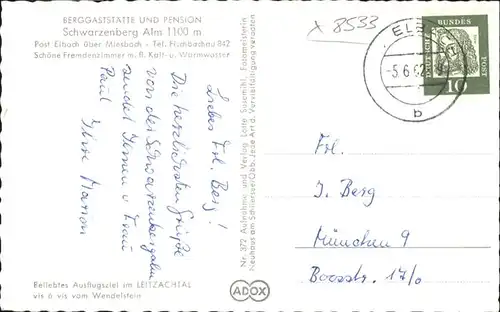 BERGGASTSTÄTTE UND PENSION
Schwarzenberg Alm 1100 m
Post Elbach über Miesbach - Tel. Hundham 842
Schöne Fremdenzimmer m. B. Kalt- u. Warmwasser
x 8533
-5.6.62
b
DEUTSCHE BUNDESPOST
10
Liebes Frl. Berg!
Die herzlichsten Grüße
von der Schwarzenbergalm
sendet Ihnen u. Frau
Paul Ihre Marion
Nr. 722 Aufnahme und Verlag Lotte Sosemihl, Fotomeisterin
Neuhaus am Schliersee/Obb. Jede Art d. Vervielfältigung verboten
Frl.
J. Berg
München 9
Boosstr. 17/0
Beliebtes Ausflugsziel im LEITZACHTAL
vis á vis vom Wendelstein
ADOX